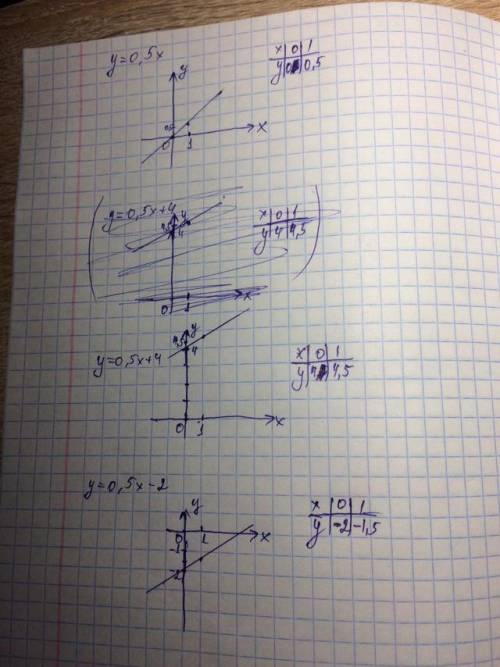 y=0,5x
x 0 1
y 0 0,5
y
0,5
0 1 x
y=0,5x+4
x 0 1
y 4 4,5
y
4,5
4
0 1 x
y=0,5x+4
x 0 1
y 4 4,5
y
4,5
4
0 1 x
y=0,5x-2
x 0 1
y -2 -1,5
y
0 1 x
-1
-2